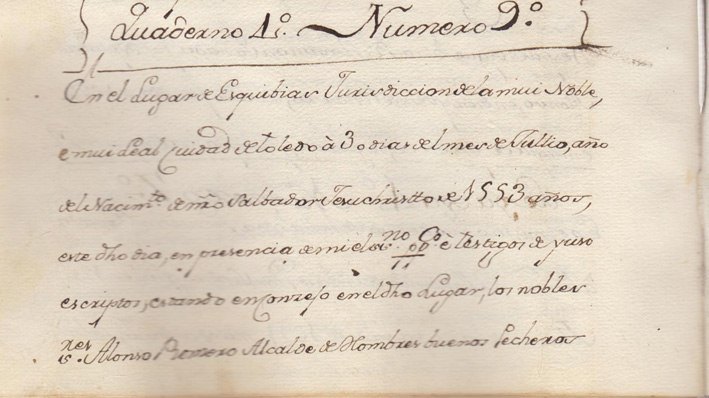 Quaderno 1º. Numero 9º.
En el Lugar de Esquibias Jurisdiccion de la mui Noble,
è mui Leal Ciudad de toledo à 30 dias del mes de Jullio, año
del Nacimto. de nro Salbador Jesuchristto de 1553 años,
este dho dia, en presencia de mi el sno. ppco. è testigos de yuso
escriptos, estando en Conzejo en el dho Lugar, los nobles
sres. Alonso Romero Alcalde de Hombres buenos Pecheros